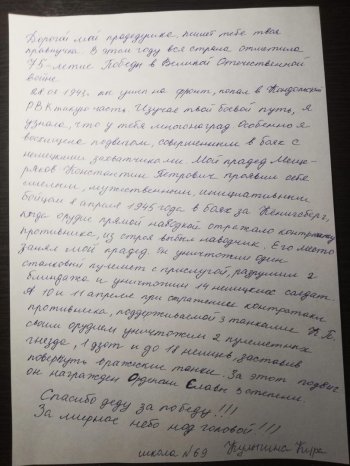 Дорогой мой прадедушка, пишет тебе твоя
правнучка. В этом году вся страна отметила
75-летие Победы в Великой Отечественной
войне.
1941г. ты ушел на фронт, попал в
РВК воинскую часть. Изучая твой боевой путь, я
узнала, что у тебя много наград. Особенно я
восхищена подвигом, совершенным в боях с
немецкими захватчиками. Мой прадед Меще-
ряков Константин Петрович проявил себя
смелым, мужественным, инициативным
бойцом 1 апреля 1945 года в боях за Кенигсберг,
когда орудие прямой наводкой отражало контратаку
противника, из строя выбыл наводчик. Его место
занял мой прадед. Он уничтожил один
станковый пулемет с прислугой, разрушил 2
блиндажа и уничтожил 14 немецких солдат.
А 10 и 11 апреля при отражение контратаки
противника, поддерживаемой 3 танками К.П.
своим орудием уничтожил 2 пулеметных
гнезда, 1 дзот и до 18 немцев, заставив
повернуть вражеские танки. За этот подвиг
он награжден Орденом Славы 3 степени.
Спасибо деду за победу!!!
За мирное небо над головой!!!
школа №69 Кулыгина Кира